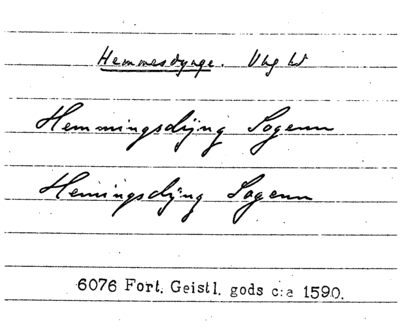 Hemmesdynge. Vhg hd
Hemmingsdijng Sogenn
Heningsdijng Sagenn
6076 Fort. Geistl. gods c:a 1590.